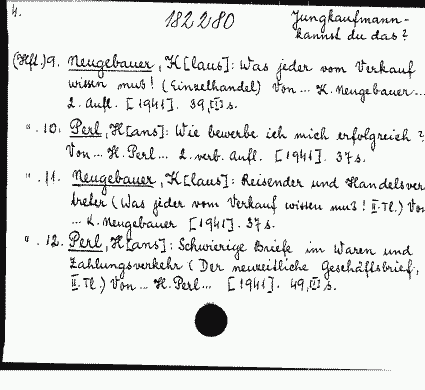 4.
182280
Jungkaufmann-
kannst du das?
(Hft.) 9. Neugebauer, K[laus]: Was jeder vom Verkauf
wissen muß! (Einzelhandel) Von ... K. Neugebauer ...
2. Aufl. [1941]. 39, [1] s.
". 10. Perl, H[ans]: Wie bewerbe ich mich erfolgreich?
Von ... H. Perl ... 2. verb. Aufl. [1941]. 37 s.
". 11. Neugebauer, K[laus]: Reisender und Handelsver
treter (Was jeder vom Verkauf wissen muß! II. Tl.) Von
... K. Neugebauer [1941]. 37 s.
". 12. Perl, H[ans]: Schwierige Briefe im Waren und
Zahlungsverkehr (Der neuzeitliche Geschäftsbrief,
II. Tl.) Von ... H. Perl ... [1941]. 49, [1] s.